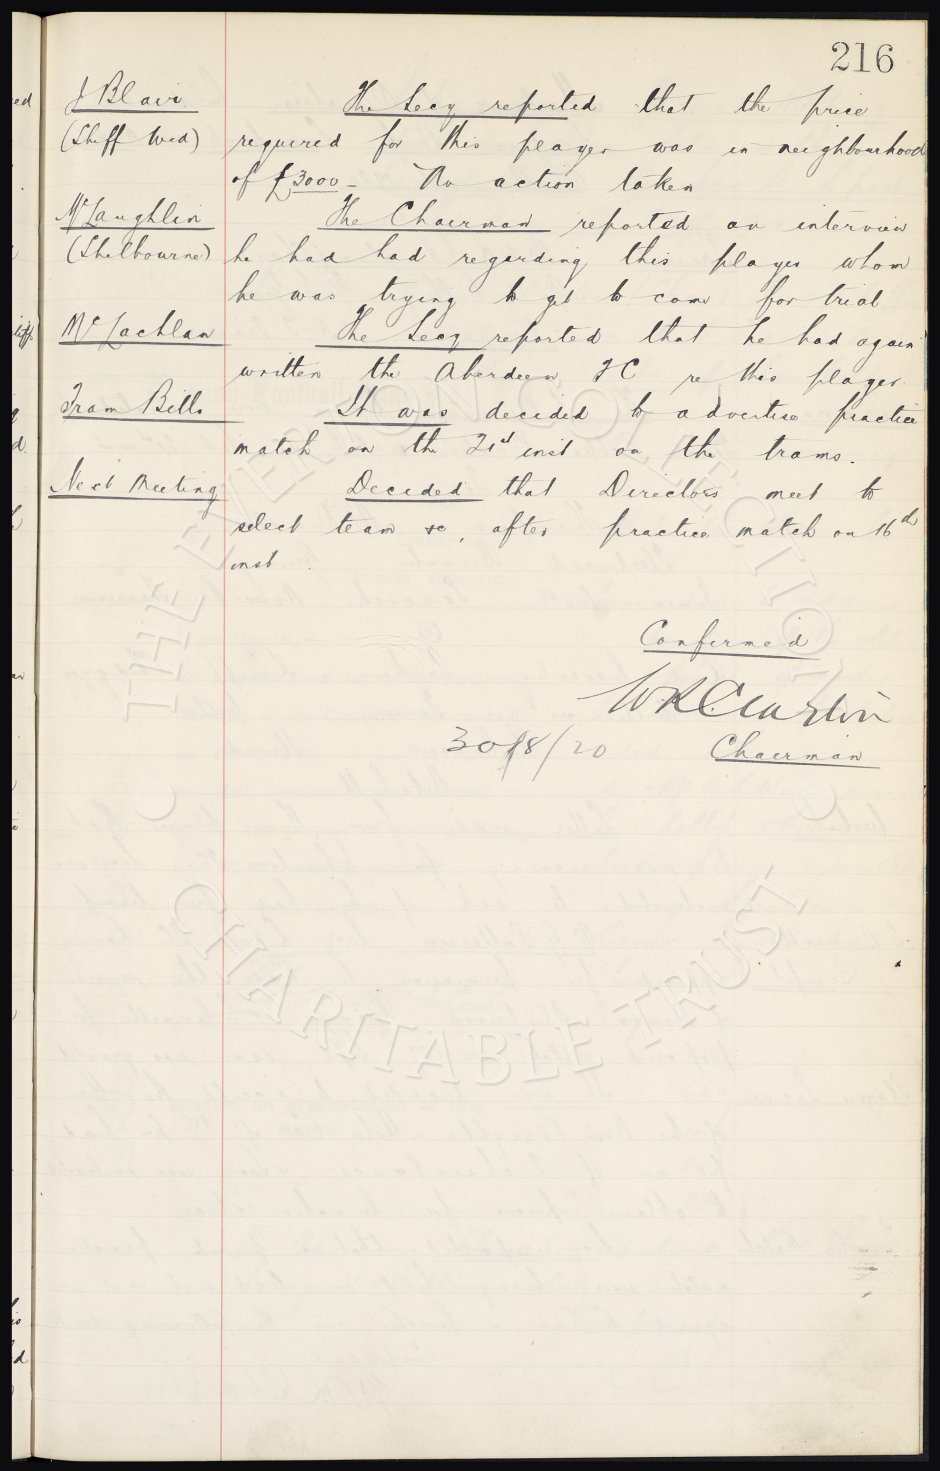 216
J Blair
The Secy reported that the price
(Sheff Wed)
required for this player was in neighbourhood
of £3000 - No action taken
McLaughlin
The Chairman reported an interview
(Shelbourne)
he had had regarding this player whom
he was trying to get to come for trial
McLachlan
The Secy reported that he had again
written the Aberdeen FC re this player.
Tram Bills
It was decided to advertise practice
match on the 21st inst on the trams.
Next Meeting
Decided that Directors meet to
select team &c, after practice match on 16th
inst.
Confirmed
W R Clayton
30/8/20
Chairman
© THE EVERTON COLLECTION ©
CHARITABLE TRUST